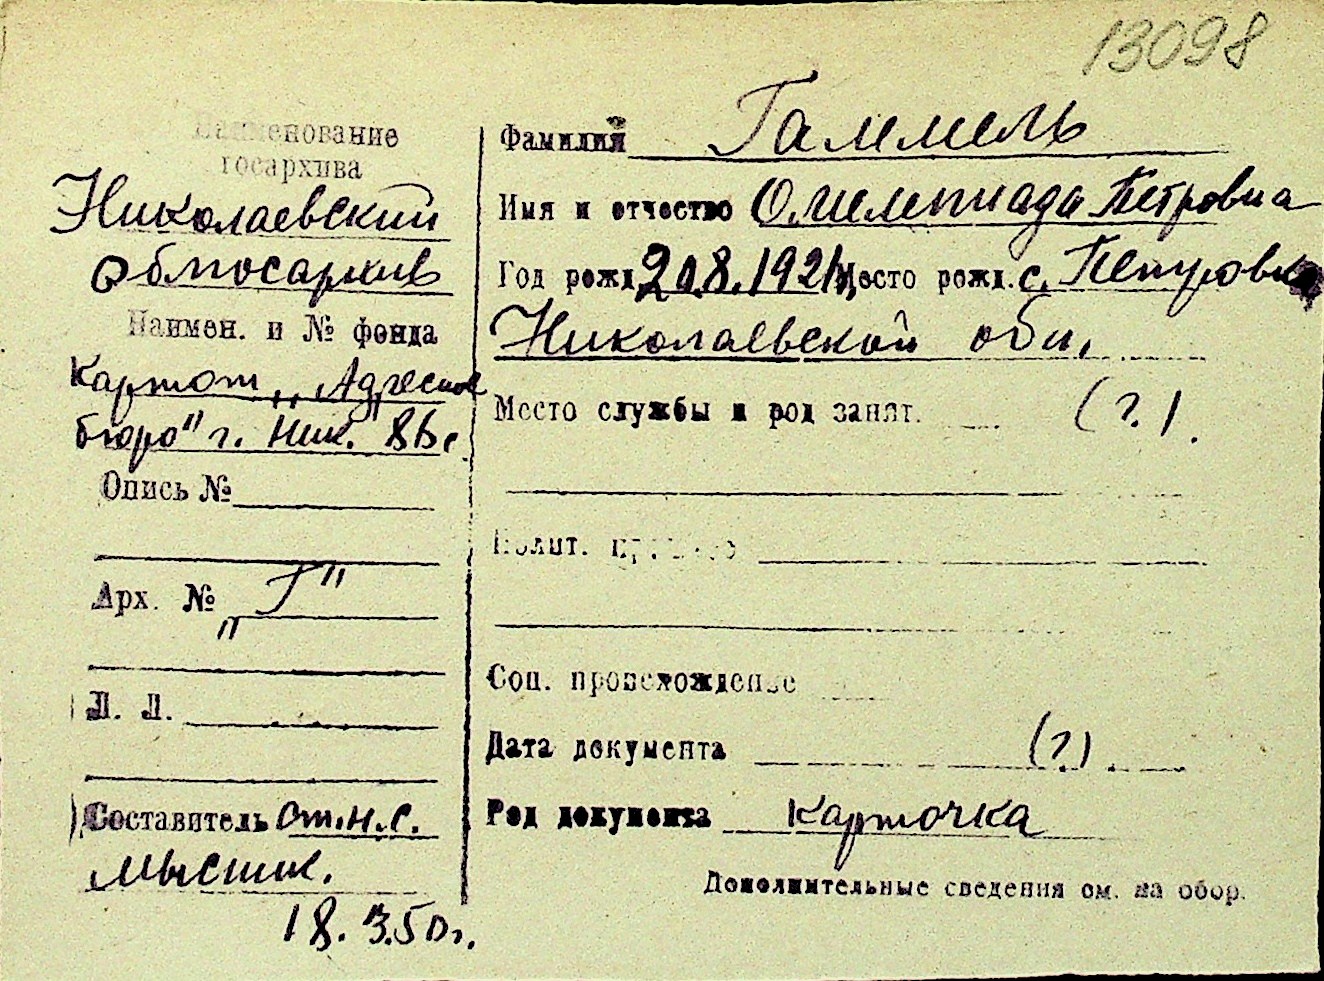 13098
Наименование
госархива
Николаевский
Облгосархив
Наимен. и № фонда
Картот. „Адресное
бюро" г. Ник.
Опись №
Арх. № „Г"
Л. Л.
Составитель ст.н.с.
18.3.50 г.
Фамилия Гаммель
Имя и отчество Олимпиада Петровна
Год рожд. 20.8.1921 Место рожд. с. Петровка
Николаевской обл.
Место службы и род занят. (?).
Полит.
Соц. происхождение
Дата документа (?)
Род документа карточка
Дополнительные сведения см. на обор.